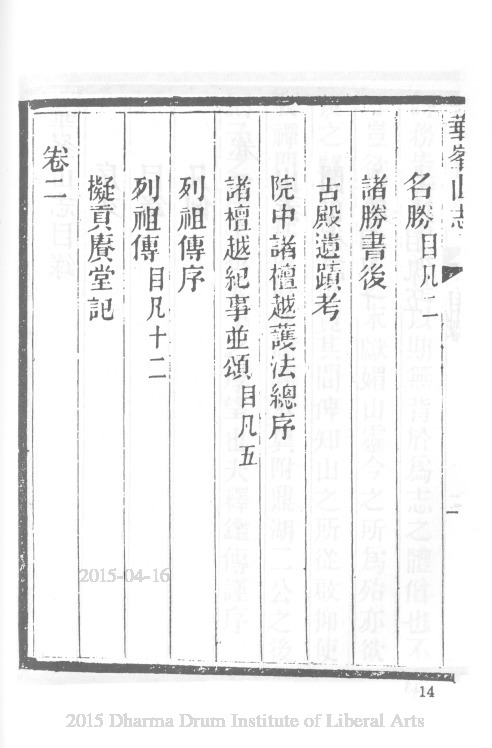 華峯山志
目錄
一
名勝目凡二
諸勝書後
古殿遺蹟考
院中諸檀越護法總序
諸檀越紀事並頌目凡五
列祖傳序
列祖傳目凡十二
擬貢賡堂記
卷二
2015-04-16
14
2015 Dharma Drum Institute of Liberal Arts